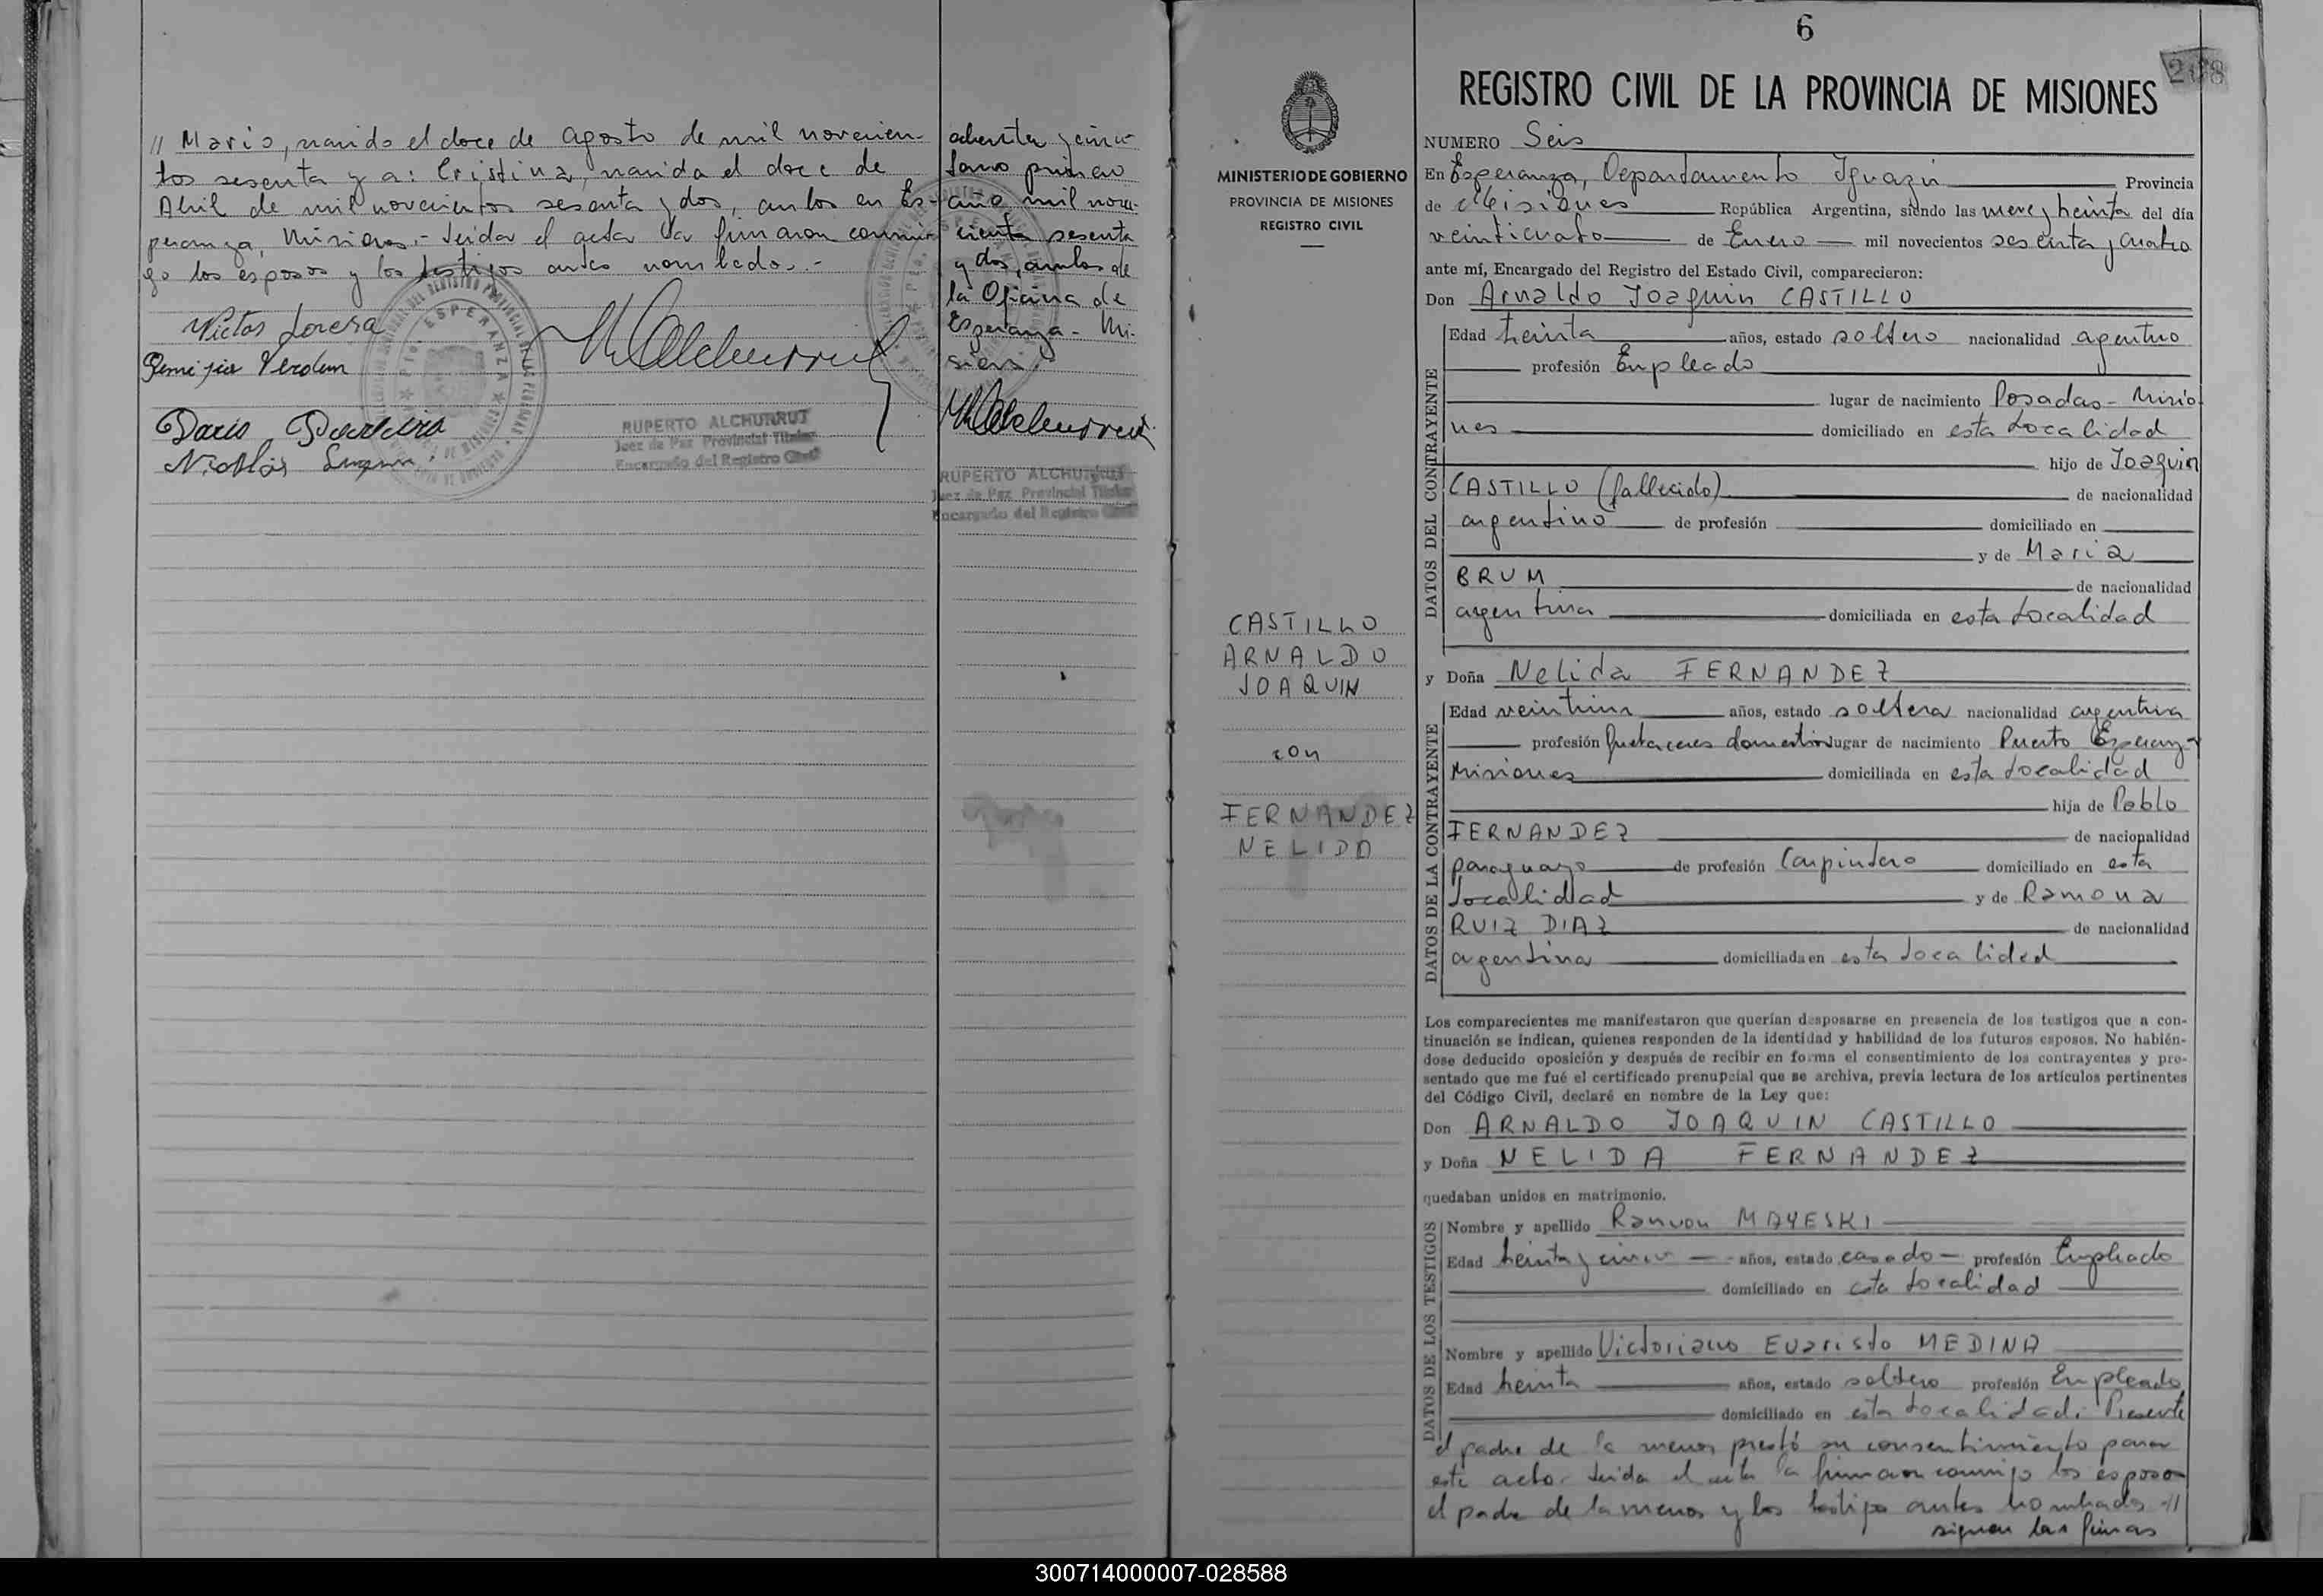 // Mario, nacido el doce de Agosto de mil novecien-
tos sesenta y a: Cristina, nacida el doce de
Abril de mil novecientos sesenta y dos, ambos en Es-
peranza, Misiones.- Leida el acta la firmaron conmi-
go los esposos y los testigos antes nombrados.-
Victor
Remijia Verdun
Dario
Nicolás
RUPERTO ALCHURRUT
Juez de Paz Provincial Titular
Encargado del Registro Civil
ochenta y cinco
tomo primero
año mil nove-
cientos sesenta
y dos, ambos de
la Oficina de
Esperanza - Mi-
siones.
RUPERTO ALCHURRUT
Juez de Paz Provincial Titular
Encargado del Registro Civil
MINISTERIO DE GOBIERNO
PROVINCIA DE MISIONES
REGISTRO CIVIL
CASTILLO
ARNALDO
JOAQUIN
con
FERNANDEZ
NELIDA
6
208
REGISTRO CIVIL DE LA PROVINCIA DE MISIONES
NUMERO Seis
En Esperanza, Departamento Iguazú Provincia
de Misiones República Argentina, siendo las nueve y treinta del día
veinticuatro de Enero mil novecientos sesenta y cuatro
ante mí, Encargado del Registro del Estado Civil, comparecieron:
Don Arnaldo Joaquin CASTILLO
DATOS DEL CONTRAYENTE
Edad treinta años, estado soltero nacionalidad argentino
profesión Empleado
lugar de nacimiento Posadas - Misio-
nes domiciliado en esta Localidad
hijo de Joaquin
CASTILLO (fallecido) de nacionalidad
argentino de profesión domiciliado en
y de Maria
BRUM de nacionalidad
argentina domiciliada en esta Localidad
y Doña Nelida FERNANDEZ
DATOS DE LA CONTRAYENTE
Edad veintiuna años, estado soltera nacionalidad argentina
profesión Quehaceres domestico lugar de nacimiento Puerto Esperanza
Misiones domiciliada en esta Localidad
hija de Pablo
FERNANDEZ de nacionalidad
paraguayo de profesión Carpintero domiciliado en esta
Localidad y de Ramona
RUIZ DIAZ de nacionalidad
argentina domiciliada en esta Localidad
Los comparecientes me manifestaron que querían desposarse en presencia de los testigos que a con-
tinuación se indican, quienes responden de la identidad y habilidad de los futuros esposos. No habién-
dose deducido oposición y después de recibir en forma el consentimiento de los contrayentes y pre-
sentado que me fué el certificado prenupcial que se archiva, previa lectura de los artículos pertinentes
del Código Civil, declaré en nombre de la Ley que:
Don ARNALDO JOAQUIN CASTILLO
y Doña NELIDA FERNANDEZ
quedaban unidos en matrimonio.
DATOS DE LOS TESTIGOS
Nombre y apellido Ramon MAYESKI
Edad treinta y cinco años, estado casado profesión Empleado
domiciliado en esta Localidad
Nombre y apellido Victoriano Evaristo MEDINA
Edad treinta años, estado soltero profesión Empleado
domiciliado en esta Localidad; Presente
el padre de la menor prestó su consentimiento para
este acto. Leida el acta la firmaron conmigo los esposos
el padre de la menor y los testigos antes nombrados -//
siguen las firmas
300714000007-028588